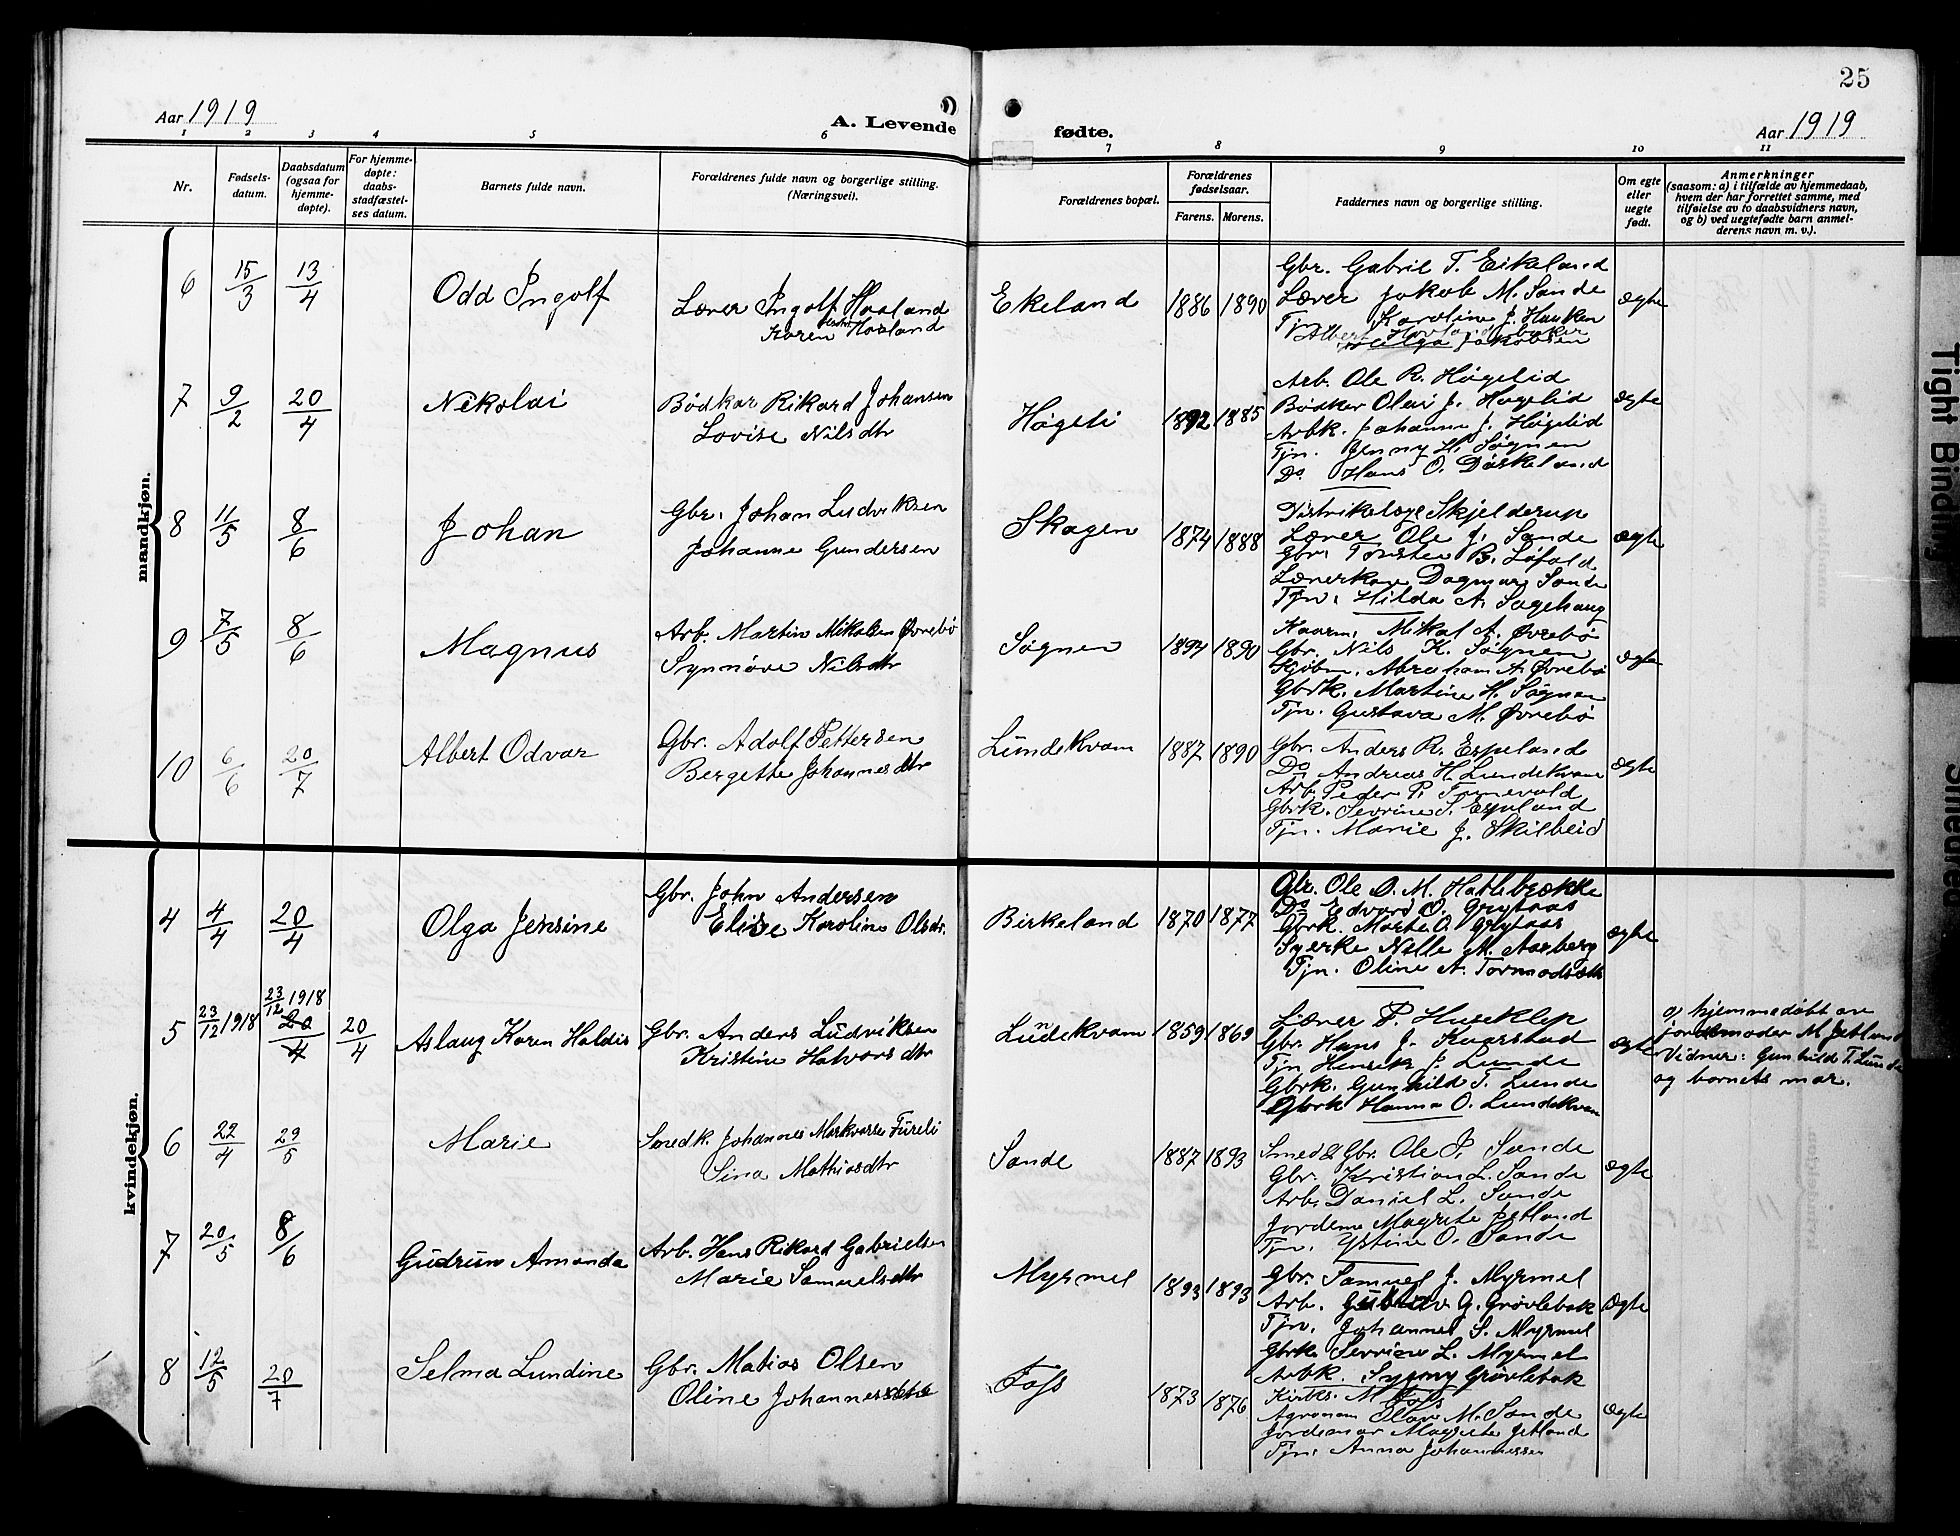 25
Aar 1919
A. Levende
fødte.
Aar 1919
1 2 3 4 5 6 7 8 9 10 11
Nr.
Fødsels-
datum.
Daabsdatum
(ogsaa for
hjemme-
døpte).
For hjemme-
døpte:
daabs-
stadfæstel-
ses datum.
Barnets fulde navn.
Forældrenes fulde navn og borgerlige stilling.
(Næringsvei).
Forældrenes bopæl.
Forældrenes
fødselsaar.
Farens. Morens.
Faddernes navn og borgerlige stilling.
Om egte
eller
uegte
født.
Anmerkninger
(saasom: a) i tilfælde av hjemmedaab,
hvem der har forrettet samme, med
tilføielse av to daabsvidners navn,
og b) ved uegtefødte barn anmel-
derens navn m. v.).
mandkjøn.
6 15/3 13/4 Odd Ingolf
Lærer Ingolf Hovland
Karen Hovland
Ekeland 1886 1890
Gbr. Gabriel T. Eikeland
Lærer Jakob M. Sande
Tjn. Karoline J. Hauken
Albert
Helga Jakobsen
ægte
7 9/2 20/4 Nikolai
Bødkar Rikard Johansen
Lovise Nilsdtr
Høgeli 1892 1885
Arb. Ole R. Høgelid
Bødker Olai J. Høgelid
Arbk. Johanne J. Høgelid
Tjn. Jenny H. Søgnen
Do Hans O. Døskeland
ægte
8 11/5 8/6 Johan
Gbr. Johan Ludviksen
Johanne Gundersen
Skagen 1874 1888
Distriktslæge Skjelderup
Lærer Ole J. Sande
Gbr. Torsten B. Løfald
Lærerkone Dagmar Sande
Tjn. Hilda A. Sagehaug
ægte
9 7/5 8/6 Magnus
Arb. Martin Mikalsen Øvrebø
Synnøve Nilsdtr
Søgnen 1894 1890
Kaarm. Mikal A. Øvrebø
Gbr. Nils K. Søgnen
Kjøbm. Abraham A. Øvrebø
Gbrk. Martine H. Søgnen
Tjn. Gustava M. Øvrebø
ægte
10 6/6 20/7 Albert Odvar
Gbr. Adolf Pettersen
Bergette Johannesdtr
Lundekvam 1887 1890
Gbr. Anders R. Espeland
Do Andreas H. Lundekvam
Arb. Peder P.
Gbrk. Sevrine S. Espeland
Tjn. Marie J. Skilbeid
ægte
kvindekjøn.
4 4/4 20/4 Olga Jensine
Gbr. John Andersen
Elise Karoline Olsdr.
Birkeland 1870 1877
Gbr. Ole O. M. Hatlebrække
Do Edvard O. Grytaas
Gbrk. Marte O. Grytaas
Syerke Nelle M. Aarberg
Tjn. Oline A. Tormodsæth
ægte
5 23/12 1918 23/12 1918 20/4 20/4 Aslaug Karen Haldis
Gbr. Anders Ludviksen
Kristine Halvorsdtr
Lundekvam 1859 1869
Lærer P. Huseklep
Gbr. Hans J. Kaarstad
Tjn Henrik J. Lunde
Gbrk. Gunhild T. Lunde
Gbrk Hanna O. Lundekvam
ægte
a) hjemmedøbt av
jordemoder M. Jetland
Vidner: Gunhild T. Lunde
og barnets mor.
6 22/4 29/5 Marie
Smedk. Johannes Markvarsen Furebø
Sina Mathiasdtr
Sande 1887 1893
Smed & Gbr. Ole P. Sande
Gbr. Kristian L. Sande
Arb. Daniel L. Sande
Jordem. Magrete Jetland
Tjn. Ystine O. Sande
ægte
7 20/5 8/6 Gudrun Amanda
Arb. Hans Rikard Gabrielsen
Marie Samuelsdtr
Myrmel 1893 1893
Gbr. Samuel J. Myrmel
Arb. Gustav G. Grøvlebak
Tjn. Johannes S. Myrmel
Gbrk Sevrine L. Myrmel
Arbk. Synny Grøvlebak
ægte
8 12/5 20/7 Selma Lundine
Gbr. Matias Olsen
Oline Johannesdtr
Foss 1873 1876
Kirks. M. Foss
Agronom Olav M. Sande
Jordemor Magrete Jetland
Tjn. Anna Johannessen
ægte
Tight Binding
Smeared